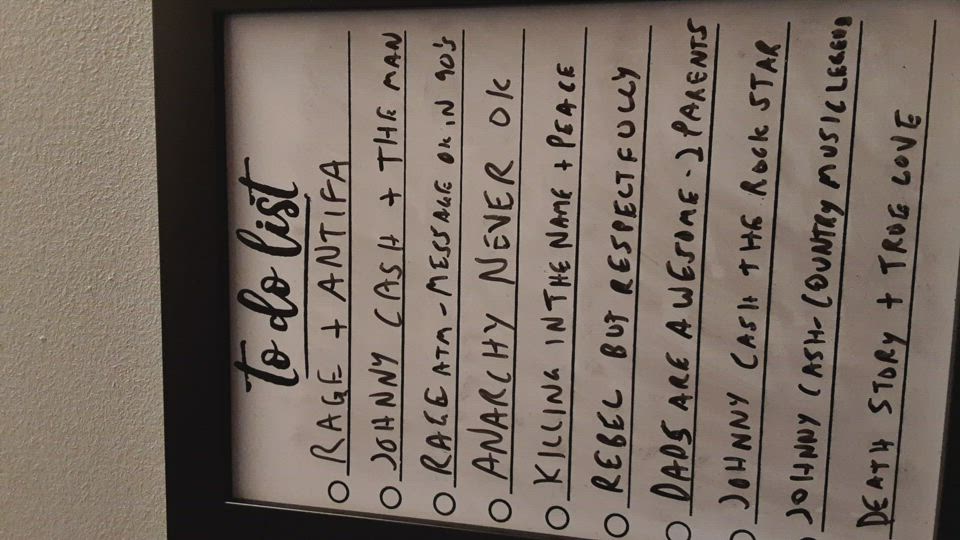 to do list
RAGE + ANTIFA
JOHNNY CASH + THE MAN
RAGE ATM - MESSAGE OK IN 90's
ANARCHY NEVER OK
KILLING IN THE NAME + PEACE
REBEL BUT RESPECTFULLY
DADS ARE AWESOME - 2 PARENTS
JOHNNY CASH THE ROCK STAR
JOHNNY CASH - COUNTRY MUSIC LEGEND
DEATH STORY + TRUE LOVE